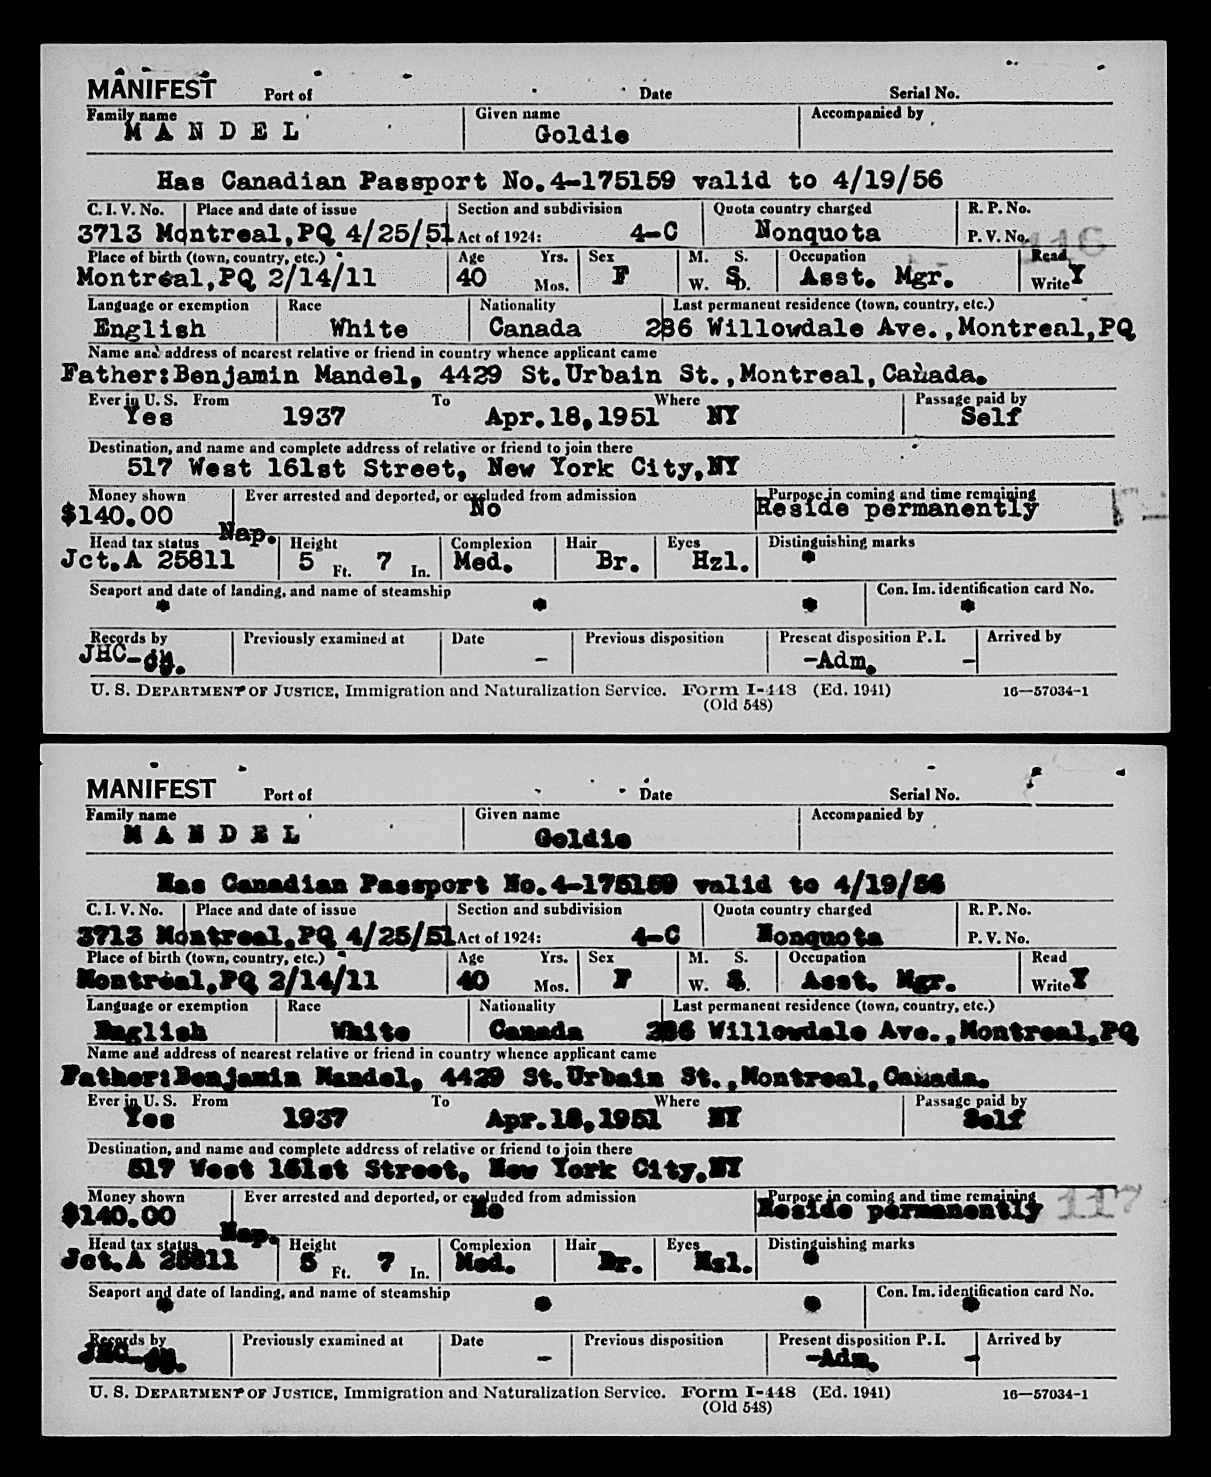 MANIFEST Port of Date Serial No.
Family name Given name Accompanied by
MANDEL Goldie
Has Canadian Passport No.4-175159 valid to 4/19/56
C. I. V. No. Place and date of issue Section and subdivision Quota country charged R. P. No.
3713 Montreal,PQ 4/25/51 Act of 1924: 4-C Nonquota P. V. No. 116
Place of birth (town, country, etc.) Age Yrs. Sex M. S. Occupation Read
Montreal,PQ 2/14/11 40 Mos. F W. S D. Asst. Mgr. Write Y
Language or exemption Race Nationality Last permanent residence (town, country, etc.)
English White Canada 236 Willowdale Ave.,Montreal,PQ
Name and address of nearest relative or friend in country whence applicant came
Father:Benjamin Mandel, 4429 St.Urbain St.,Montreal,Canada.
Ever in U. S. From To Where Passage paid by
Yes 1937 Apr.18,1951 NY Self
Destination, and name and complete address of relative or friend to join there
517 West 161st Street, New York City,NY
Money shown Ever arrested and deported, or excluded from admission Purpose in coming and time remaining
$140.00 No Reside permanently
Nap.
Head tax status Height Complexion Hair Eyes Distinguishing marks
Jct.A 25811 5 Ft. 7 In. Med. Br. Hzl.
Seaport and date of landing, and name of steamship Con. Im. identification card No.
Records by Previously examined at Date Previous disposition Present disposition P. I. Arrived by
JHC- - -Adm. -
U. S. DEPARTMENT OF JUSTICE, Immigration and Naturalization Service. Form I-448 (Ed. 1941) 16—57034-1
(Old 548)
MANIFEST Port of Date Serial No.
Family name Given name Accompanied by
MANDEL Goldie
Has Canadian Passport No.4-175159 valid to 4/19/56
C. I. V. No. Place and date of issue Section and subdivision Quota country charged R. P. No.
3713 Montreal,PQ 4/25/51 Act of 1924: 4-C Nonquota P. V. No.
Place of birth (town, country, etc.) Age Yrs. Sex M. S. Occupation Read
Montreal,PQ 2/14/11 40 Mos. F W. S D. Asst. Mgr. Write Y
Language or exemption Race Nationality Last permanent residence (town, country, etc.)
English White Canada 236 Willowdale Ave.,Montreal,PQ
Name and address of nearest relative or friend in country whence applicant came
Father:Benjamin Mandel, 4429 St.Urbain St.,Montreal,Canada.
Ever in U. S. From To Where Passage paid by
Yes 1937 Apr.18,1951 NY Self
Destination, and name and complete address of relative or friend to join there
517 West 161st Street, New York City,NY
Money shown Ever arrested and deported, or excluded from admission Purpose in coming and time remaining
$140.00 No Reside permanently 117
Nap.
Head tax status Height Complexion Hair Eyes Distinguishing marks
Jct.A 25811 5 Ft. 7 In. Med. Br. Hzl.
Seaport and date of landing, and name of steamship Con. Im. identification card No.
Records by Previously examined at Date Previous disposition Present disposition P. I. Arrived by
JHC- - -Adm. -
U. S. DEPARTMENT OF JUSTICE, Immigration and Naturalization Service. Form I-448 (Ed. 1941) 16—57034-1
(Old 548)